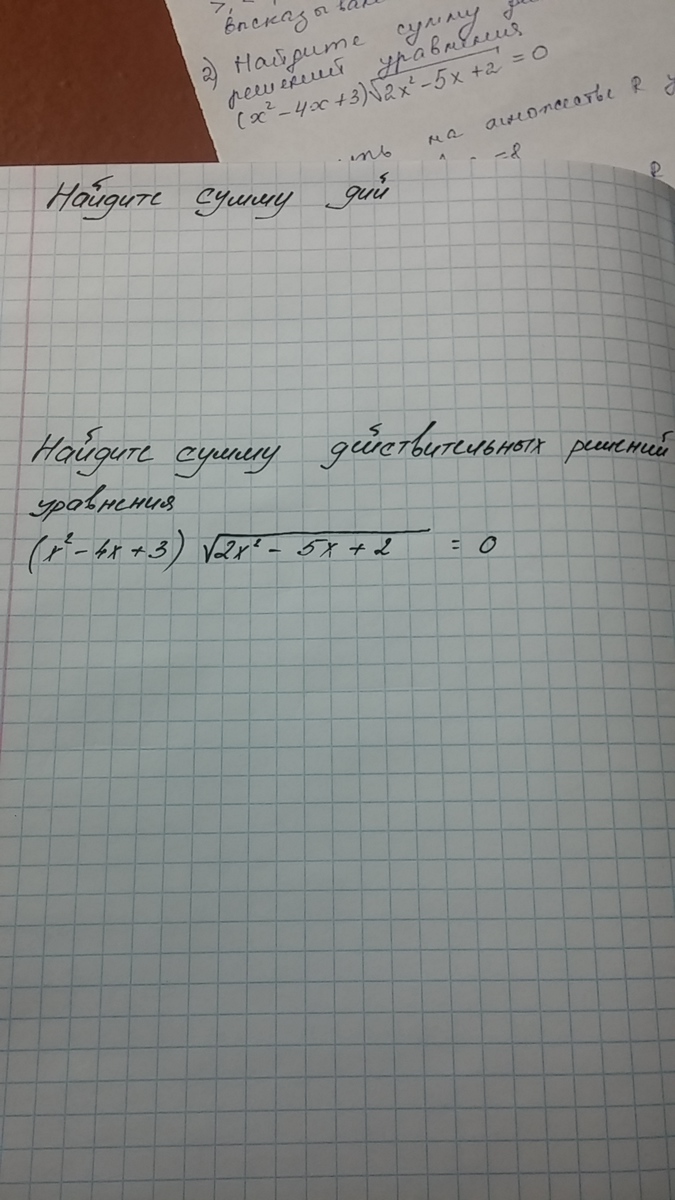 высказыван
2) Найдите сумму
решений уравнения
(x² - 4x + 3)√2x² - 5x + 2 = 0
на множестве R
=8
R
Найдите сумму дий
Найдите сумму действительных решений
уравнения
(x² - 4x + 3) √2x² - 5x + 2 = 0